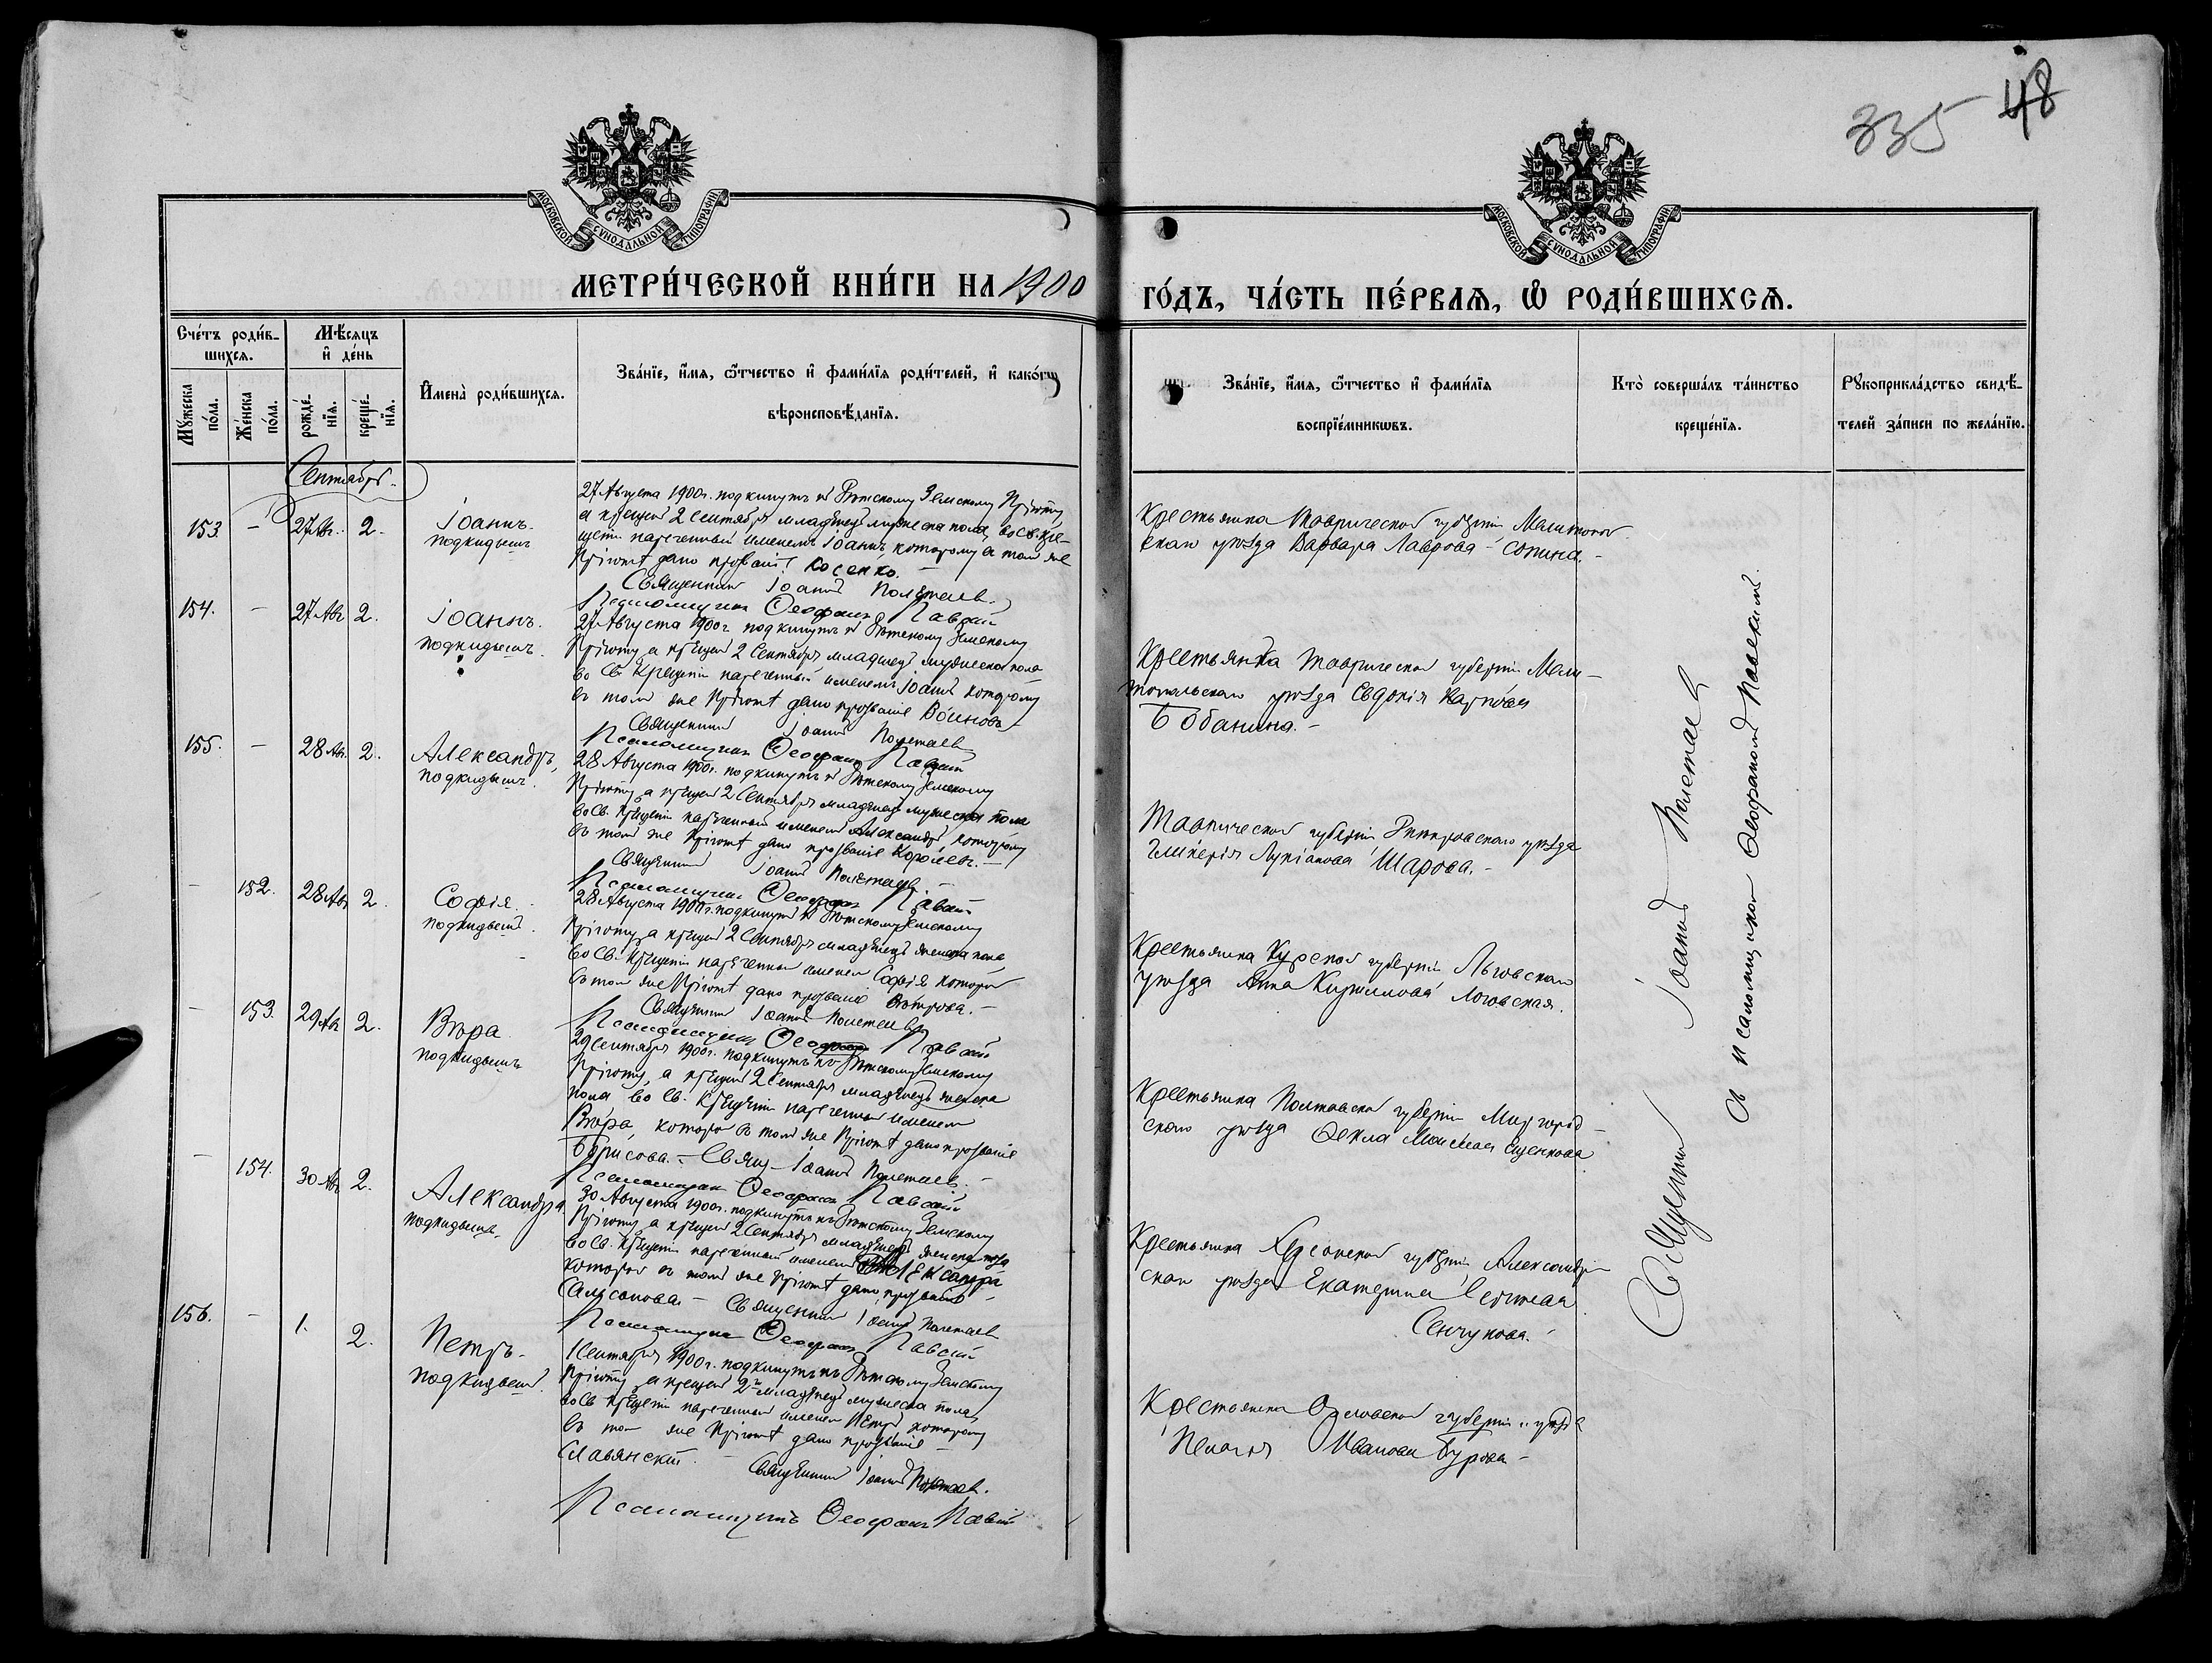 335 48
МОСКОВСКОЙ СѴНОДАЛЬНОЙ ТИПОГРАФІИ
МОСКОВСКОЙ СѴНОДАЛЬНОЙ ТИПОГРАФІИ
МЕТРИ́ЧЕСКОЙ КНИ́ГИ НА 1900
ГО́ДЪ, ЧА́СТЬ ПЕ́РВАѦ, Ѽ РОДИ́ВШИХСѦ.
Сче́тъ роди́в-
шихсѧ.
Мꙋжеска по́ла.
Же́нска по́ла.
Мѣ́сѧцъ
и҆ де́нь
рожде́-
нїѧ.
креще́-
нїѧ.
И҆мена̀ роди́вшихсѧ.
Зва́нїе, и҆́мѧ, ѻ҆́тчество и҆ фами́лїѧ роди́телей, и҆ како́гѡ
вѣроисповѣ́данїѧ.
Зва́нїе, и҆́мѧ, ѻ҆́тчество и҆ фами́лїѧ
воспрїе́мникѡвъ.
Кто̀ соверша́лъ та́инство
креще́нїѧ.
Рꙋкоприкла́дство свидѣ́-
телей за́писи по жела́нїю.
Сентябрь.
153 - 27 Авг. 2.
Іоаннъ.
подкидышъ
27 Августа 1900 г. подкинутъ къ Дѣтскому Земскому Пріюту
а крещенъ 2 Сентября младенецъ мужеска пола, во св. кре-
щеніи нареченный именемъ Іоаннъ которому въ томъ же
Пріютѣ дано прозваніе Косенко.
Священникъ Іоаннъ Полетаевъ.
Псаломщикъ Ѳеофанъ Павскій
Крестьянка Таврической губерніи Мелитополь-
скаго уѣзда Варвара Лаврова Сопина.-
154. - 27 Авг 2.
Іоаннъ.
подкидышъ.
27 Августа 1900 г. подкинутъ къ Дѣтскому Земскому
Пріюту а крещенъ 2 Сентября, младенецъ мужеска пола
во Св Крещеніи нареченный именемъ Іоаннъ которому
въ томъ же Пріютѣ дано прозваніе Воиновъ.-
Священникъ Іоаннъ Полетаевъ
Псаломщикъ Ѳеофанъ Павскій
Крестьянка Таврической губерніи Мели-
топольскаго уѣзда Евдокія Карпова
Бобанина.-
155. - 28 Авг. 2.
Александръ,
подкидышъ.
28 Августа 1900 г. подкинутъ къ Дѣтскому Земскому
Пріюту, а крещенъ 2 Сентября младенецъ мужеска пола
во Св. Крещеніи нареченный именемъ Александръ, которому
въ томъ же Пріютѣ дано прозваніе Королевъ.-
Священникъ Іоаннъ Полетаевъ.-
Псаломщикъ Ѳеофанъ Павскій
Таврической губерніи Днѣпровскаго уѣзда
Гликерія Лукіанова Шарова.-
- 152. 28 Авг 2.
Софія.
подкидышъ.
28 Августа 1900 г. подкинутъ къ Дѣтскому Земскому
Пріюту, а крещенъ 2 Сентября младенецъ женска пола,
во Св. Крещеніи нареченный именемъ Софія которой
въ томъ же Пріютѣ дано прозваніе Вѣтрова.-
Священникъ Іоаннъ Полетаевъ
Псаломщикъ Ѳеофанъ Павскій
Крестьянка Курской губерніи Льговскаго
уѣзда Анна Кириллова Логовская.
- 153. 29 Авг 2.
Вѣра
подкидышъ
29 Сентября 1900 г. подкинутъ къ Дѣтскому Земскому
Пріюту, а крещенъ 2 Сентября младенецъ женска
пола во Св. Крещеніи нареченный именемъ
Вѣра, которой въ томъ же Пріютѣ дано прозваніе
Борисова.- Свящ- Іоаннъ Полетаевъ.-
Псаломщикъ Ѳеофанъ Павскій
Крестьянка Полтавской губерніи Миргород-
скаго уѣзда Ѳекла Ищенкова
- 154. 30 Авг 2.
Александра
подкидышъ.
30 Августа 1900 г. подкинутъ къ Дѣтскому Земскому
Пріюту а крещенъ 2 Сентября младенецъ женска пола
во Св. Крещеніи нареченный именемъ Александра
которой въ томъ же Пріютѣ дано прозваніе
Самсонова - Священникъ Іоаннъ Полетаевъ
Псаломщикъ Ѳеофанъ Павскій
Крестьянка Херсонской губерніи Александрій-
скаго уѣзда Екатерина
Сенчукова.-
156. - 1. 2.
Петръ.-
подкидышъ.
1 Сентября 1900 г. подкинутъ къ Дѣтскому Земскому
Пріюту, а крещенъ 2го младенецъ мужеска пола,
во Св Крещеніи нареченный именемъ Петръ которому
въ томъ же Пріютѣ дано прозваніе -
Славянскій.- Священникъ Іоаннъ Полетаевъ.
Псаломщикъ Ѳеофанъ Павскій
Крестьянка Орловской губерніи и уѣзда
Пелагія Иванова Бурова -
Священникъ Іоаннъ Полетаевъ
съ псаломщикомъ Ѳеофаномъ Павскимъ.